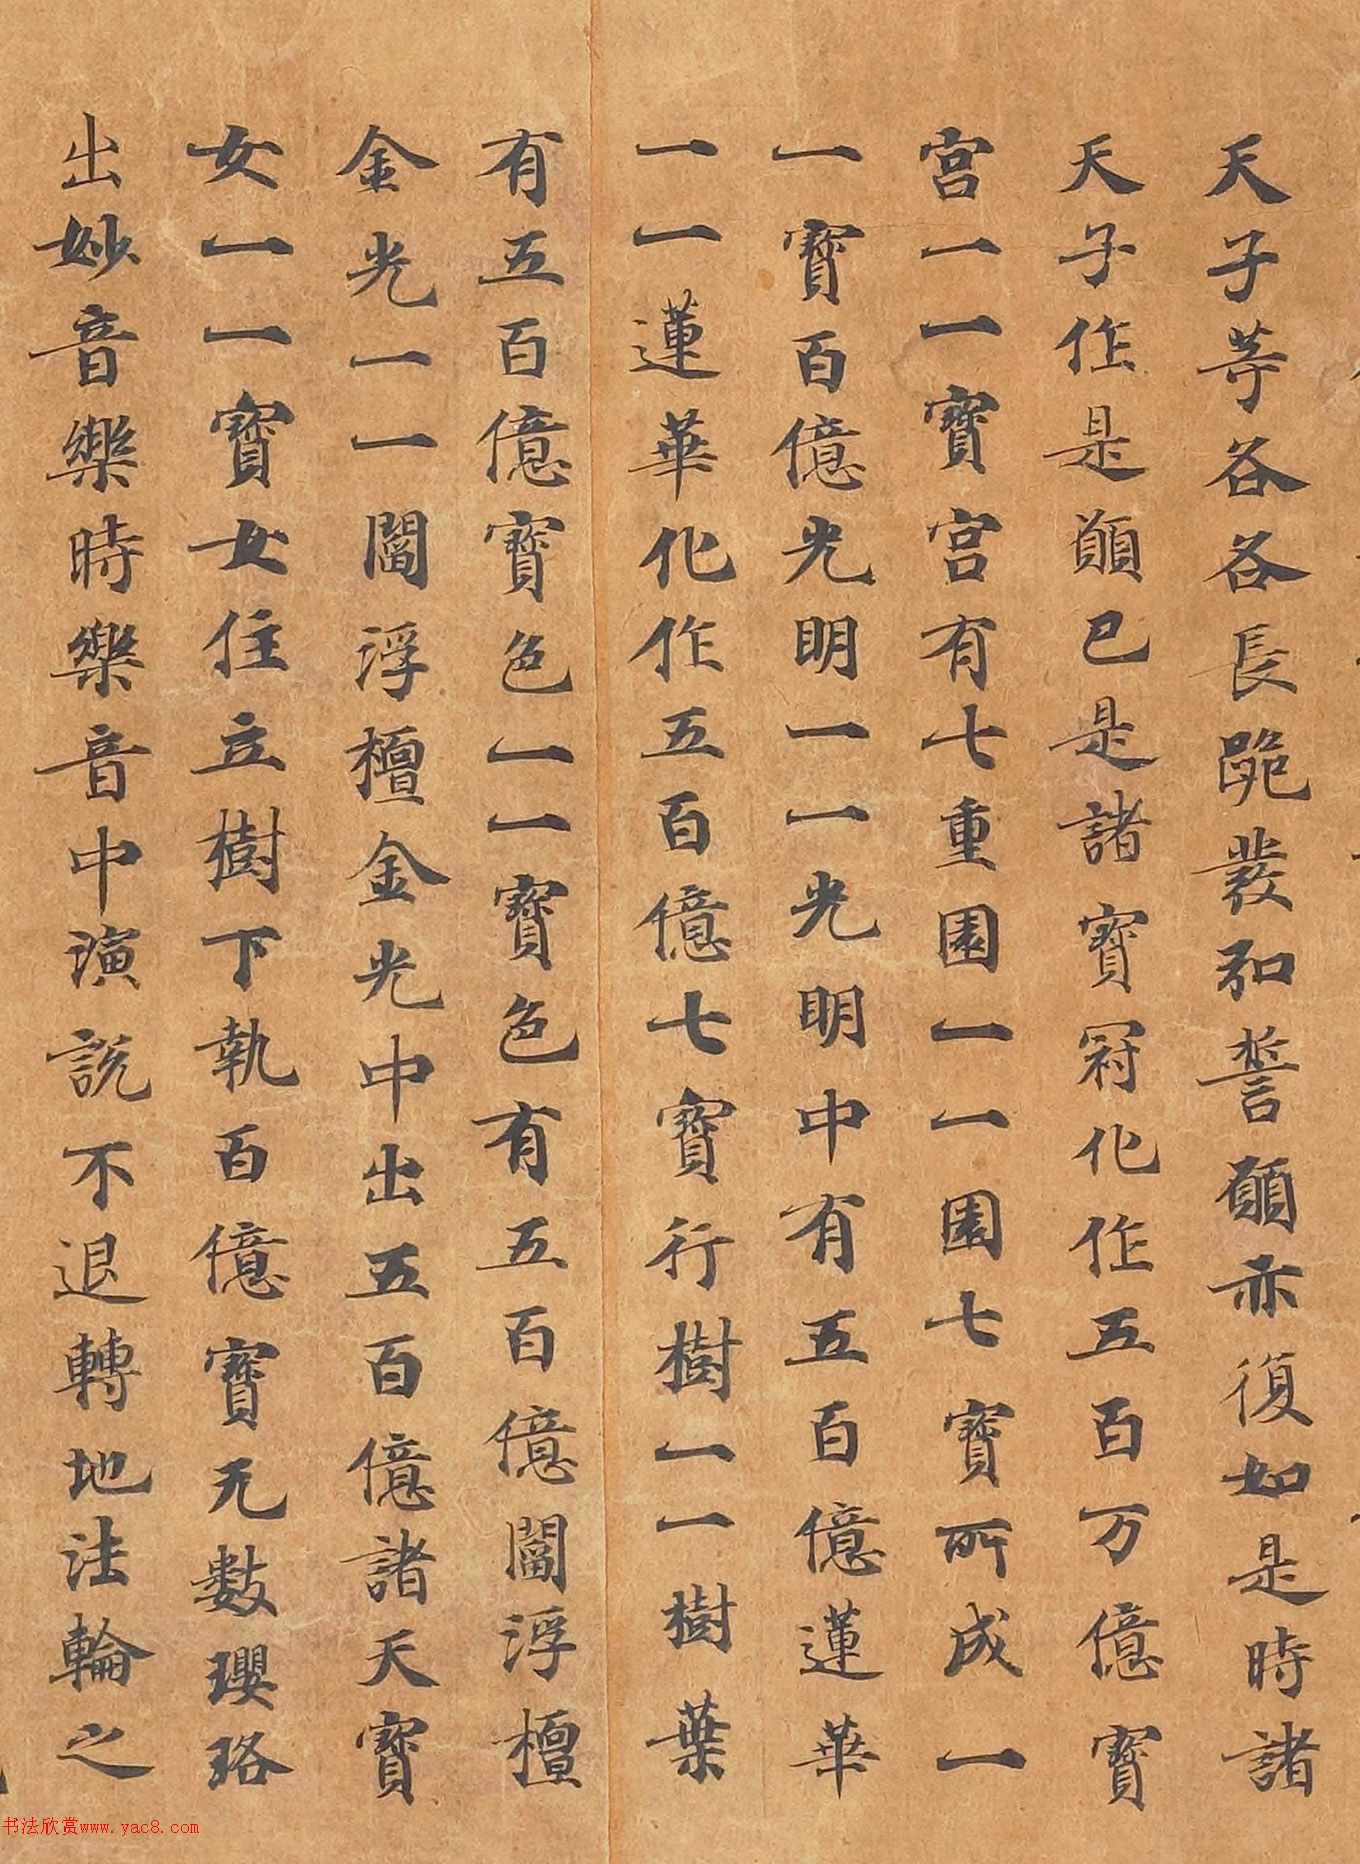 天子等各各長跪發弘誓願亦復如是時諸
天子作是願已是諸寶冠化作五百万億寶
宮一一寶宮有七重園一一園七寶所成一
一寶百億光明一一光明中有五百億蓮華
一一蓮華化作五百億七寶行樹一一樹葉
有五百億寶色一一寶色有五百億閻浮檀
金光一一閻浮檀金光中出五百億諸天寶
女一一寶女住立樹下執百億寶无數瓔珞
出妙音樂時樂音中演說不退轉地法輪之
书法欣赏www.yac8.com